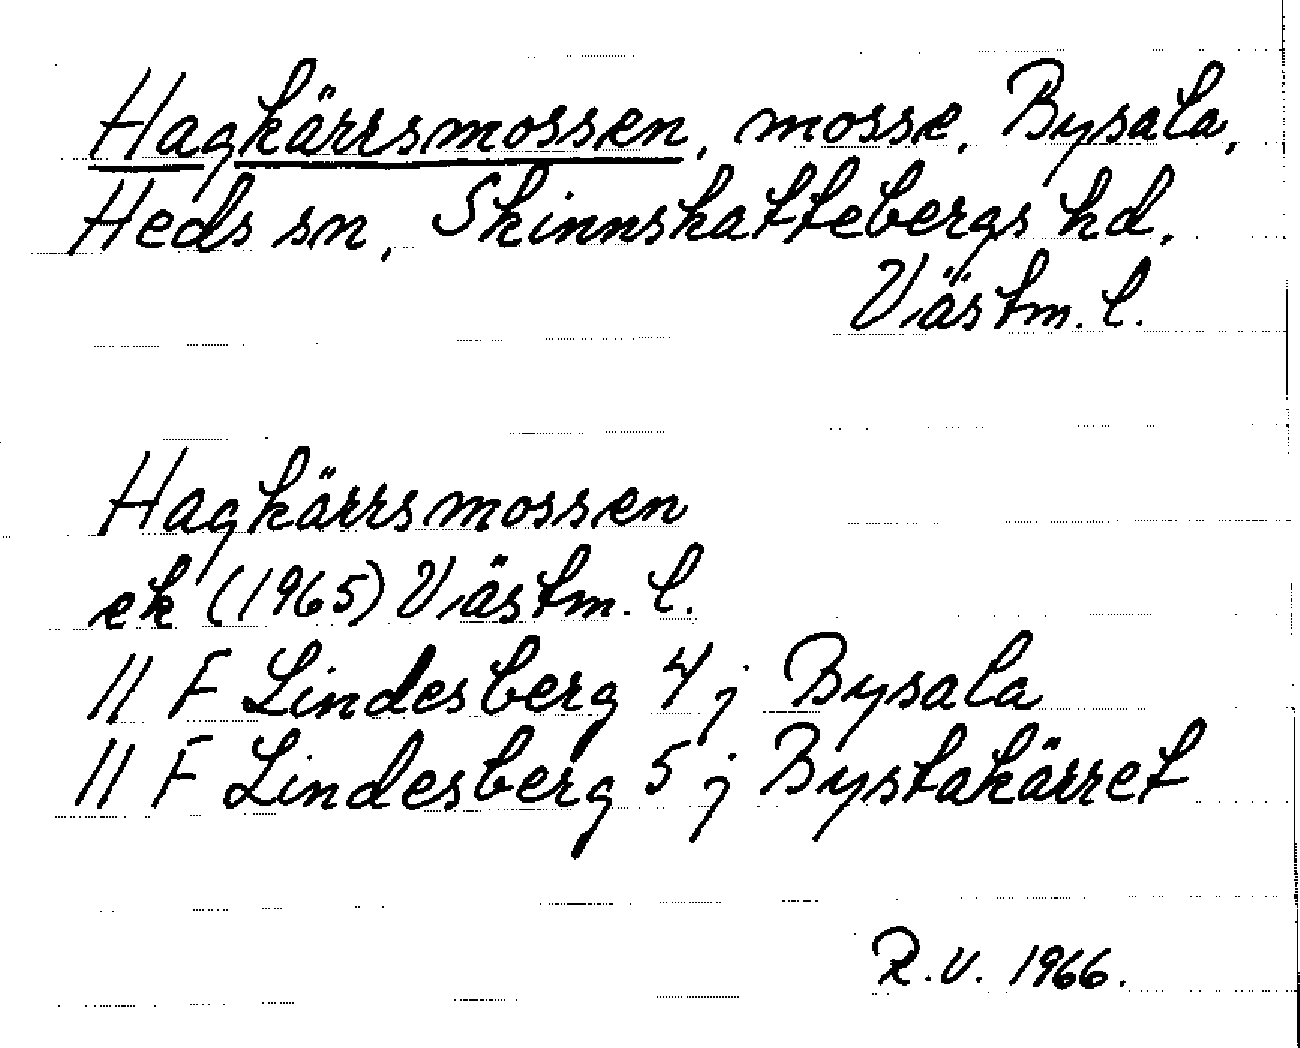 Hagkärrsmossen, mosse, Bysala,
Heds sn, Skinnskattebergs hd,
Västm. l.
Hagkärrsmossen
ek (1965) Västm. l.
11 F Lindesberg 4 j Bysala
11 F Lindesberg 5 j Bystakärret
R.V. 1966.